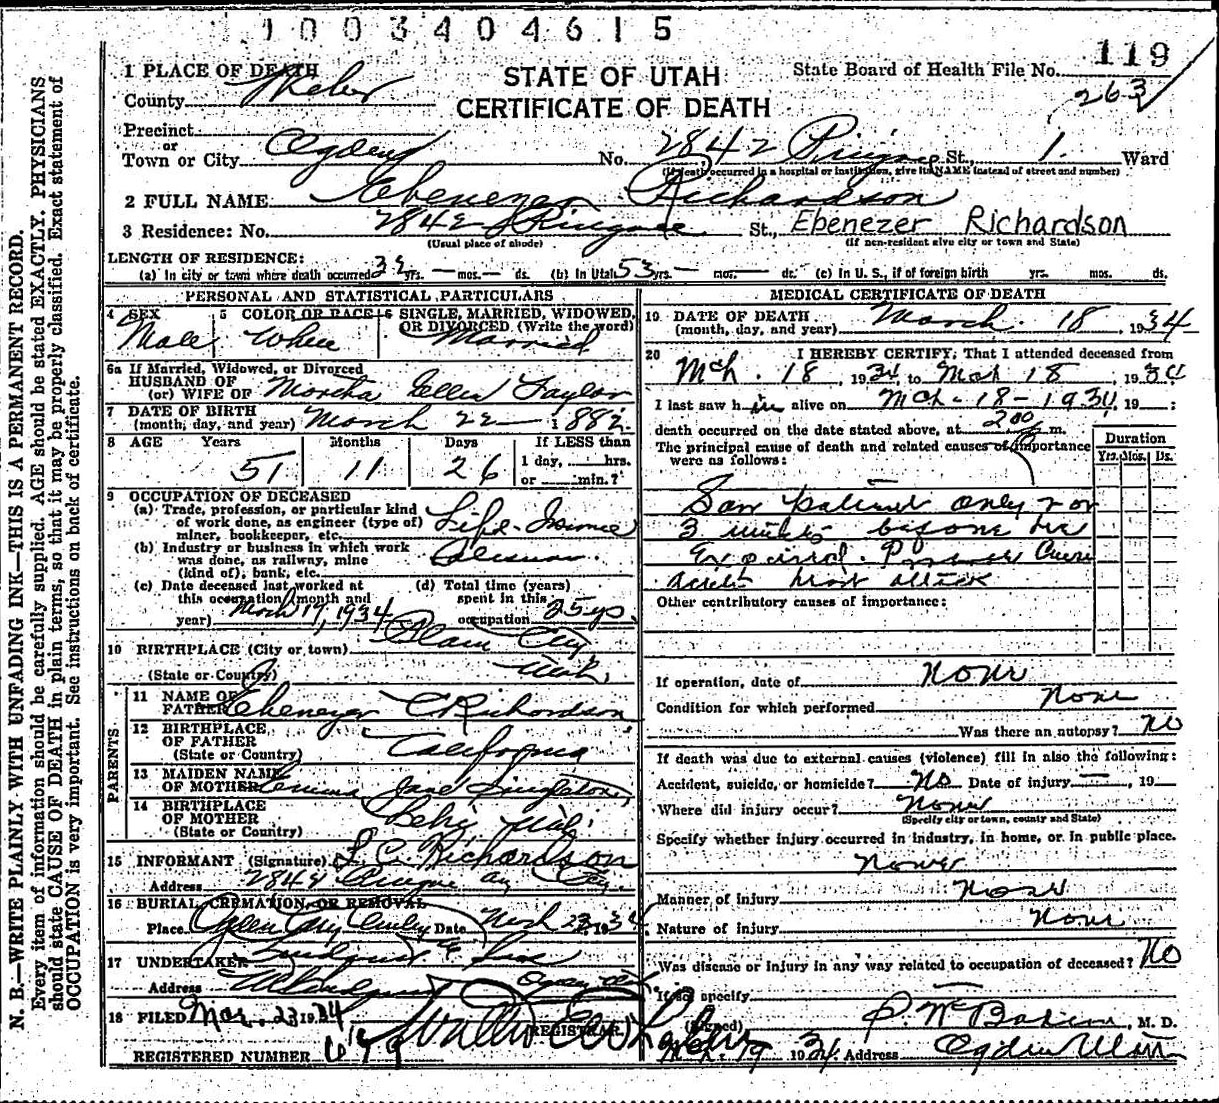 1003404615
119
1 PLACE OF DEATH STATE OF UTAH State Board of Health File No.
County Weber CERTIFICATE OF DEATH 263
Precinct
or
Town or City Ogden No. 2842 Pingree St., 1. Ward
(If death occurred in a hospital or institution, give its NAME instead of street and number)
2 FULL NAME Ebenezer Richardson
3 Residence: No. 2842 Pingree St., Ebenezer Richardson
(Usual place of abode) (If non-resident give city or town and State)
LENGTH OF RESIDENCE:
(a) In city or town where death occurred yrs. — mos. — ds. (b) In Utah 53 yrs. — mos. — ds. (c) In U. S., if of foreign birth yrs. mos. ds.
PERSONAL AND STATISTICAL PARTICULARS
4 SEX 5 COLOR OR RACE 6 SINGLE, MARRIED, WIDOWED, OR DIVORCED (Write the word)
Male White Married
6a If Married, Widowed, or Divorced
HUSBAND OF
(or) WIFE OF Martha Ellen Taylor
7 DATE OF BIRTH
(month, day, and year) March 22 - 1882
8 AGE Years Months Days If LESS than
51 11 26 1 day, hrs.
or min.?
9 OCCUPATION OF DECEASED
(a) Trade, profession, or particular kind
of work done, as engineer (type of)
miner, bookkeeper, etc. Life-Insurance
(b) Industry or business in which work
was done, as railway, mine
(kind of); bank, etc.
(c) Date deceased last worked at (d) Total time (years)
this occupation (month and spent in this
year) March 17, 1934 occupation 25 yrs
10 BIRTHPLACE (City or town) Plain City
(State or Country) Utah.
PARENTS
11 NAME OF
FATHER Ebenezer C Richardson
12 BIRTHPLACE
OF FATHER
(State or Country) California
13 MAIDEN NAME
OF MOTHER Jane Singleton
14 BIRTHPLACE
OF MOTHER
(State or Country) Lehi Utah
15 INFORMANT (Signature) L. C. Richardson
Address 2842 Pingree
16 BURIAL, CREMATION, OR REMOVAL
Place Ogden City Date Mch 23 1934
17 UNDERTAKER Lindquist & Sons
Address Ogden
18 FILED Mar. 23 1934
(REGISTRAR.)
REGISTERED NUMBER
MEDICAL CERTIFICATE OF DEATH
19 DATE OF DEATH
(month, day, and year) March. 18, 1934
20 I HEREBY CERTIFY, That I attended deceased from
Mch. 18, 1934, to Mch 18, 1934
I last saw him alive on Mch-18-1934, 19 ;
death occurred on the date stated above, at 200 P m.
The principal cause of death and related causes of importance
were as follows:
Duration
Yrs. Mos. Ds.
Saw patient only 2 or
3 minutes before he
Expired.
acute heart attack
Other contributory causes of importance:
If operation, date of None
Condition for which performed None
Was there an autopsy? No
If death was due to external causes (violence) fill in also the following:
Accident, suicide, or homicide? No Date of injury — , 19
Where did injury occur? None
(Specify city or town, county and State)
Specify whether injury occurred in industry, in home, or in public place.
None
Manner of injury None
Nature of injury None
Was disease or injury in any way related to occupation of deceased? No
If so, specify
(Signed) , M. D.
Mch. 19 1934 Address Ogden Utah
N. B.—WRITE PLAINLY WITH UNFADING INK—THIS IS A PERMANENT RECORD.
Every item of information should be carefully supplied. AGE should be stated EXACTLY. PHYSICIANS
should state CAUSE OF DEATH in plain terms, so that it may be properly classified. Exact statement of
OCCUPATION is very important. See instructions on back of certificate.